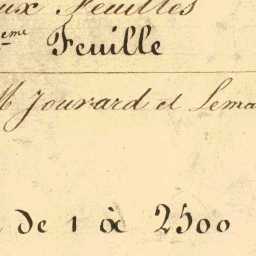 ux Feuilles
eme Feuille
M Jouvard et Lema
de 1 à 2500